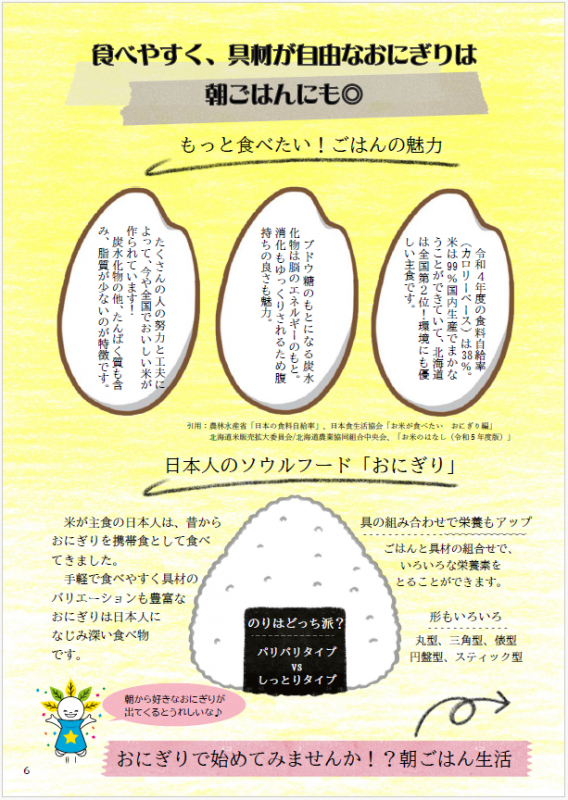 食べやすく、具材が自由なおにぎりは
朝ごはんにも◎
もっと食べたい！ごはんの魅力
令和４年度の食料自給率
（カロリーベース）は38％。
米は99％国内生産でまかな
うことができていて、北海道
は全国第２位！環境にも優
しい主食です。
ブドウ糖のもとになる炭水
化物は脳のエネルギーのもと。
消化もゆっくりされるため腹
持ちの良さも魅力。
たくさんの人の努力と工夫に
よって、今や全国でおいしい米が
作られています！
炭水化物の他、たんぱく質も含
み、脂質が少ないのが特徴です。
引用：農林水産省「日本の食料自給率」、日本食生活協会「お米が食べたい　おにぎり編」
北海道米販売拡大委員会/北海道農業協同組合中央会、「お米のはなし（令和５年度版）」
日本人のソウルフード「おにぎり」
米が主食の日本人は、昔から
おにぎりを携帯食として食べ
てきました。
手軽で食べやすく具材の
バリエーションも豊富な
おにぎりは日本人に
なじみ深い食べ物
です。
具の組み合わせで栄養もアップ
ごはんと具材の組合せで、
いろいろな栄養素を
とることができます。
形もいろいろ
丸型、三角型、俵型
円盤型、スティック型
のりはどっち派？
パリパリタイプ
vs
しっとりタイプ
朝から好きなおにぎりが
出てくるとうれしいな♪
おにぎりで始めてみませんか！？朝ごはん生活
6